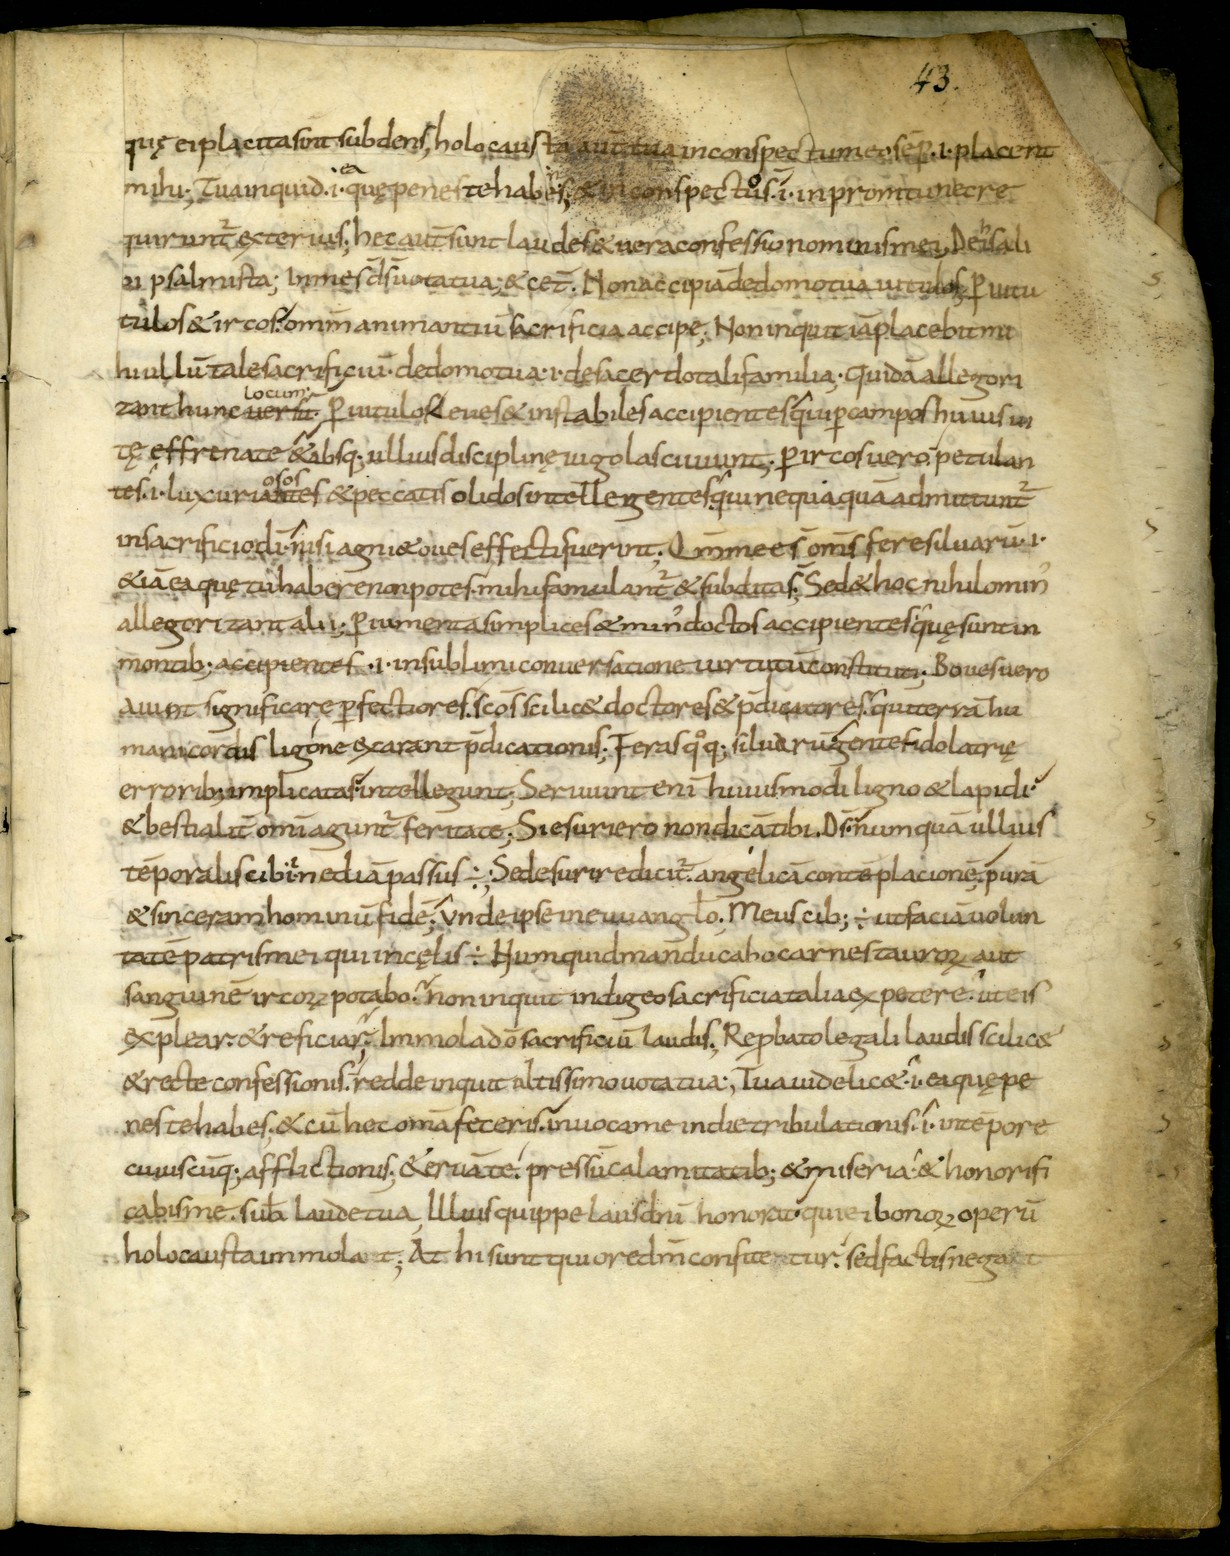 43.
quę ei placita sint subdens; holocausta aut̄ tua in conspectu meo sēp. ·i· placent
mihi; Tua inquid ·i· ea quę penes te habes; & in conspectu os̄. ·i· in promtu nec re
quirunt᷑ exterius; hec aut̄ sunt laudes & uera confessio nominis mei, De his ali
ui psalmista; In me s̄ d̄s uota tua; & cet̄. Non accipiā de domo tua uitulos; ꝑ uitu
tulos & ircos. omn̄ animantiū sacrificia accipe; Non inquit iā placebit mi
hi ullū tale sacrificiū. de domo tua ·i· de sacerdotali familia; Quidā allegori
zant hunc locum uersū; ꝑ uitulos leues & instabiles accipientes qui ꝑ campos huius ui
tę effrenate & absq; ullius disciplinę iugo lasciuiunt; ꝑ ircos uero. petulan
tes ·i· luxuriantes osos & peccatis olidos intellegentes qui nequaquā admittunt᷑
in sacrificio dī. nisi agni & oues effecti fuerint; Qm̄ meę s̄ om̄s ferę siluarū ·i·
& iā ea quę tu habere non potes. mihi famulant᷑ & subdita s̄; Sed & hoc nihilomin᾽
allegorizant alii; ꝑ iumenta simplices & min᾽ doctos accipientes quę sunt in
montib; accipientes ·i· in sublimi conuersatione uirtutū constituti; Boues uero
aiunt significare ꝑfectiores. sc̄os scilic& doctores & p̄dicatores. qui terrā hu
mani cordis ligone exarant p̄dicationis; Feras qoq; siluarū gentes idolatrię
errorib; implicatas intellegunt; Seruiunt eni huiusmodi ligno & lapidi.
& bestialit̄ om̄i agunt᷑ feritate; Si esuriero non dicā tibi. Ds̄ numquā ullius
tēporalis cibi inediā passus ÷; Sed esurire dicit᷑. angelicā contēplacionē. purā
& sinceram hominū fidē; Vnde ipse in euuanglo; Meus cib; ÷ ut faciā uolun
tatē patris mei qui in cęlis ÷ Numquid manducabo carnes tauroꝝ aut
sanguinē ircoꝝ potabo. non inquit indigeo sacrificia talia expetere. ut eis
explear. & reficiar; Immola dō sacrificiū laudis; Rep̱bato legali laudis scilic&
& recte confessionis. redde inquit altissimo uota tua; Tua uidelic& ·i· ea quę pe
nes te habes; & cū hec om̄a feceris. inuoca me in die tribulationis. ·i· in tēpore
cuiuscūq; afflictionis; & eruā te. pressū calamitatib; & miseria. & honorifi
cabis me. sub laude tua, Illius quippe laus dn̄i honorat. qui ei bonoꝝ operū
holocausta immolat; At hi sunt qui ore dn̄m confitentur. sed factis negant